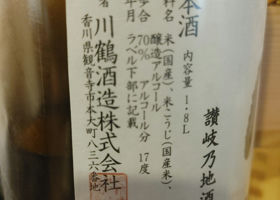 本酒
内容量1.8L
讃岐乃地酒
料名 米(国産)、米こうじ(国産米)、
醸造アルコール
歩合 70% アルコール分 17度
年月 ラベル下部に記載
者 川鶴酒造株式会社
香川県観音寺市本大町八三六番地